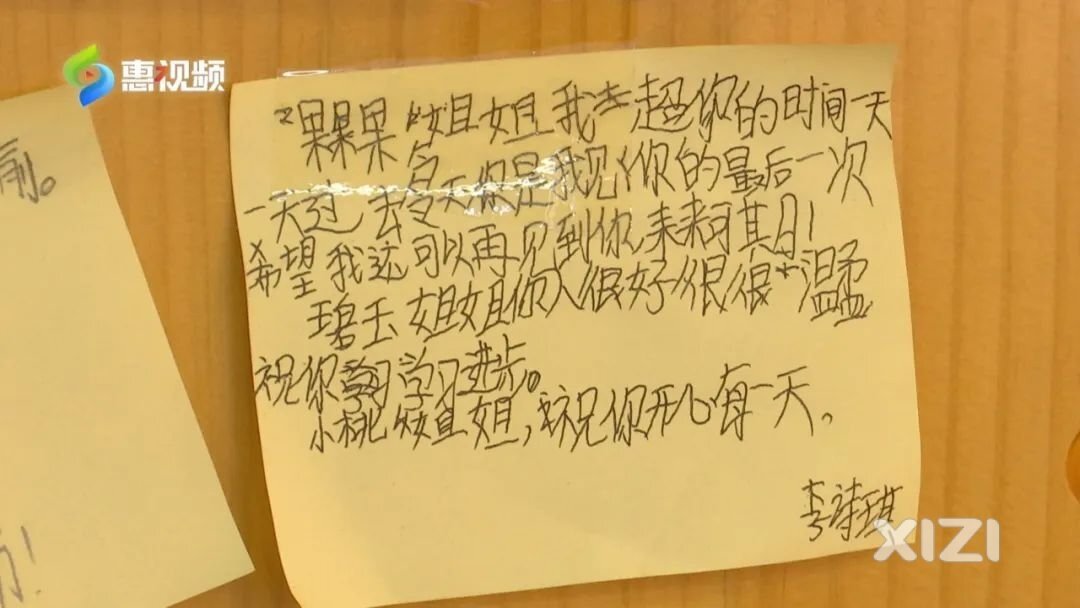 惠视频
果果姐姐我超你的时间一天
一天过去今天你是我见你的最后一次
希望我还可以再见到你，未来可其日！
碧玉姐姐你人很好很很温
祝你学习进步。
小桃姐姐，我祝你开心每一天。
李诗琪
XIZI